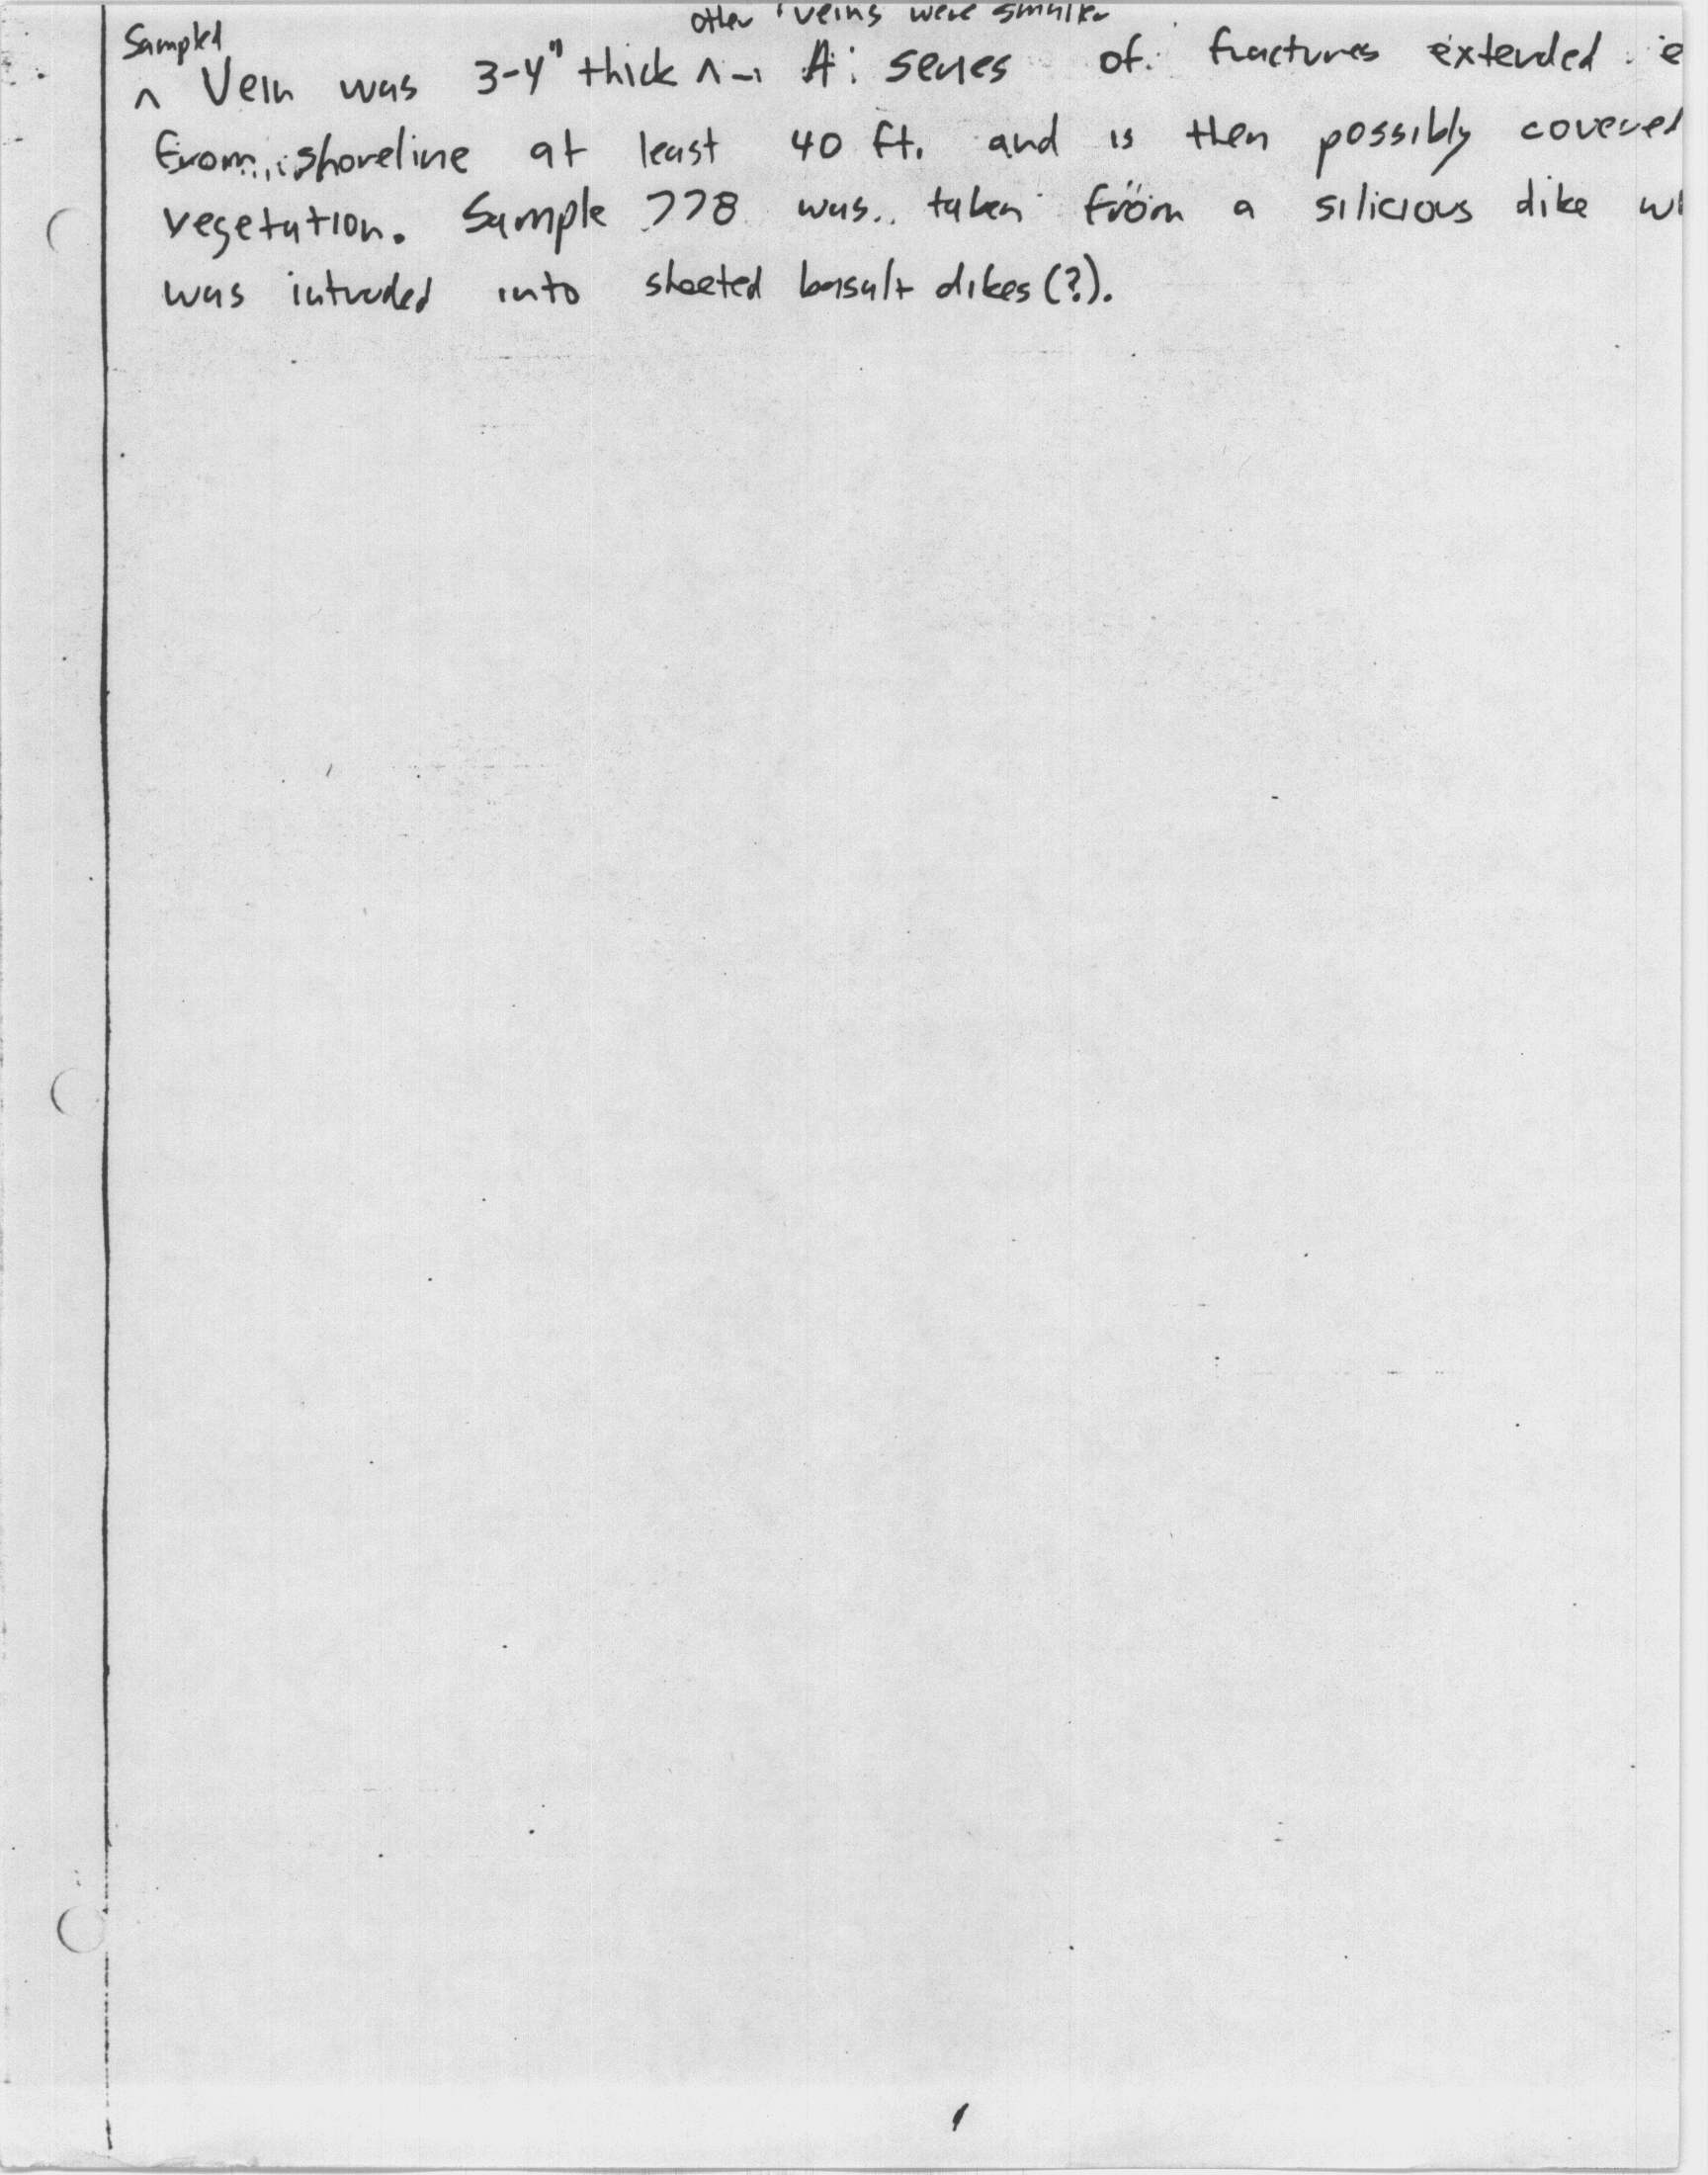 other veins were smaller
Sampled
^ Vein was 3-4" thick ^ - A series of fractures extended e
from shoreline at least 40 ft. and is then possibly covered
vegetation. Sample 778 was taken from a silicious dike wh
was intruded into sheeted basalt dikes (?).